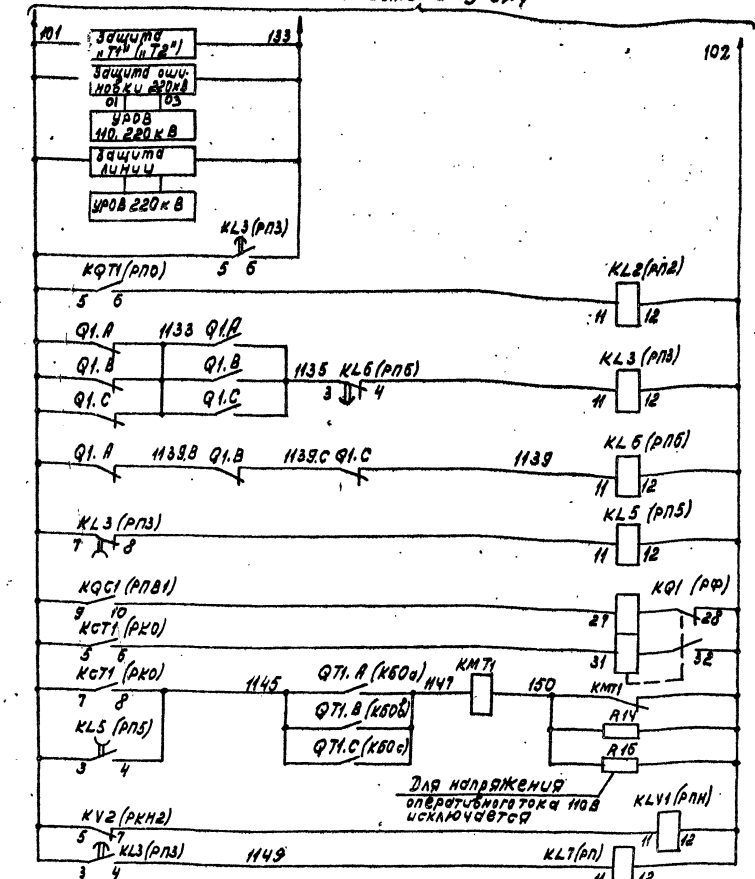 101
Защита
„Т1" („Т2")
133
102
Защита оши-
новки 220кВ
01 03
УРОВ
110, 220 кВ
Защита
линии
УРОВ 220 кВ
KL3 (РП3)
5 6
KQT1 (РПО)
5 6
KL2 (РП2)
11 12
Q1.A 1133 Q1.A
Q1.B Q1.B
1135 KL6 (РП6)
3 4
KL3 (РП3)
11 12
Q1.C Q1.C
Q1.A 1139.B Q1.B 1139.C Q1.C 1139
KL6 (РП6)
11 12
KL3 (РП3)
7 8
KL5 (РП5)
11 12
KQC1 (РПВ1)
9 10
KQ1 (РФ)
27 28
KCT1 (РКО)
5 6
31 32
KCT1 (РКО)
7 8
1145
QT1.A (КБОа)
1147
KMT1
150
KMT1
QT1.B (КБОв)
R14
KL5 (РП5)
3 4
QT1.C (КБОс)
R15
Для напряжения
оперативного тока 110В
исключается
KV2 (РКН2)
5 7
KLV1 (РПН)
11 12
KL3 (РП3)
3 4
1149
KL7 (РП)
11 12